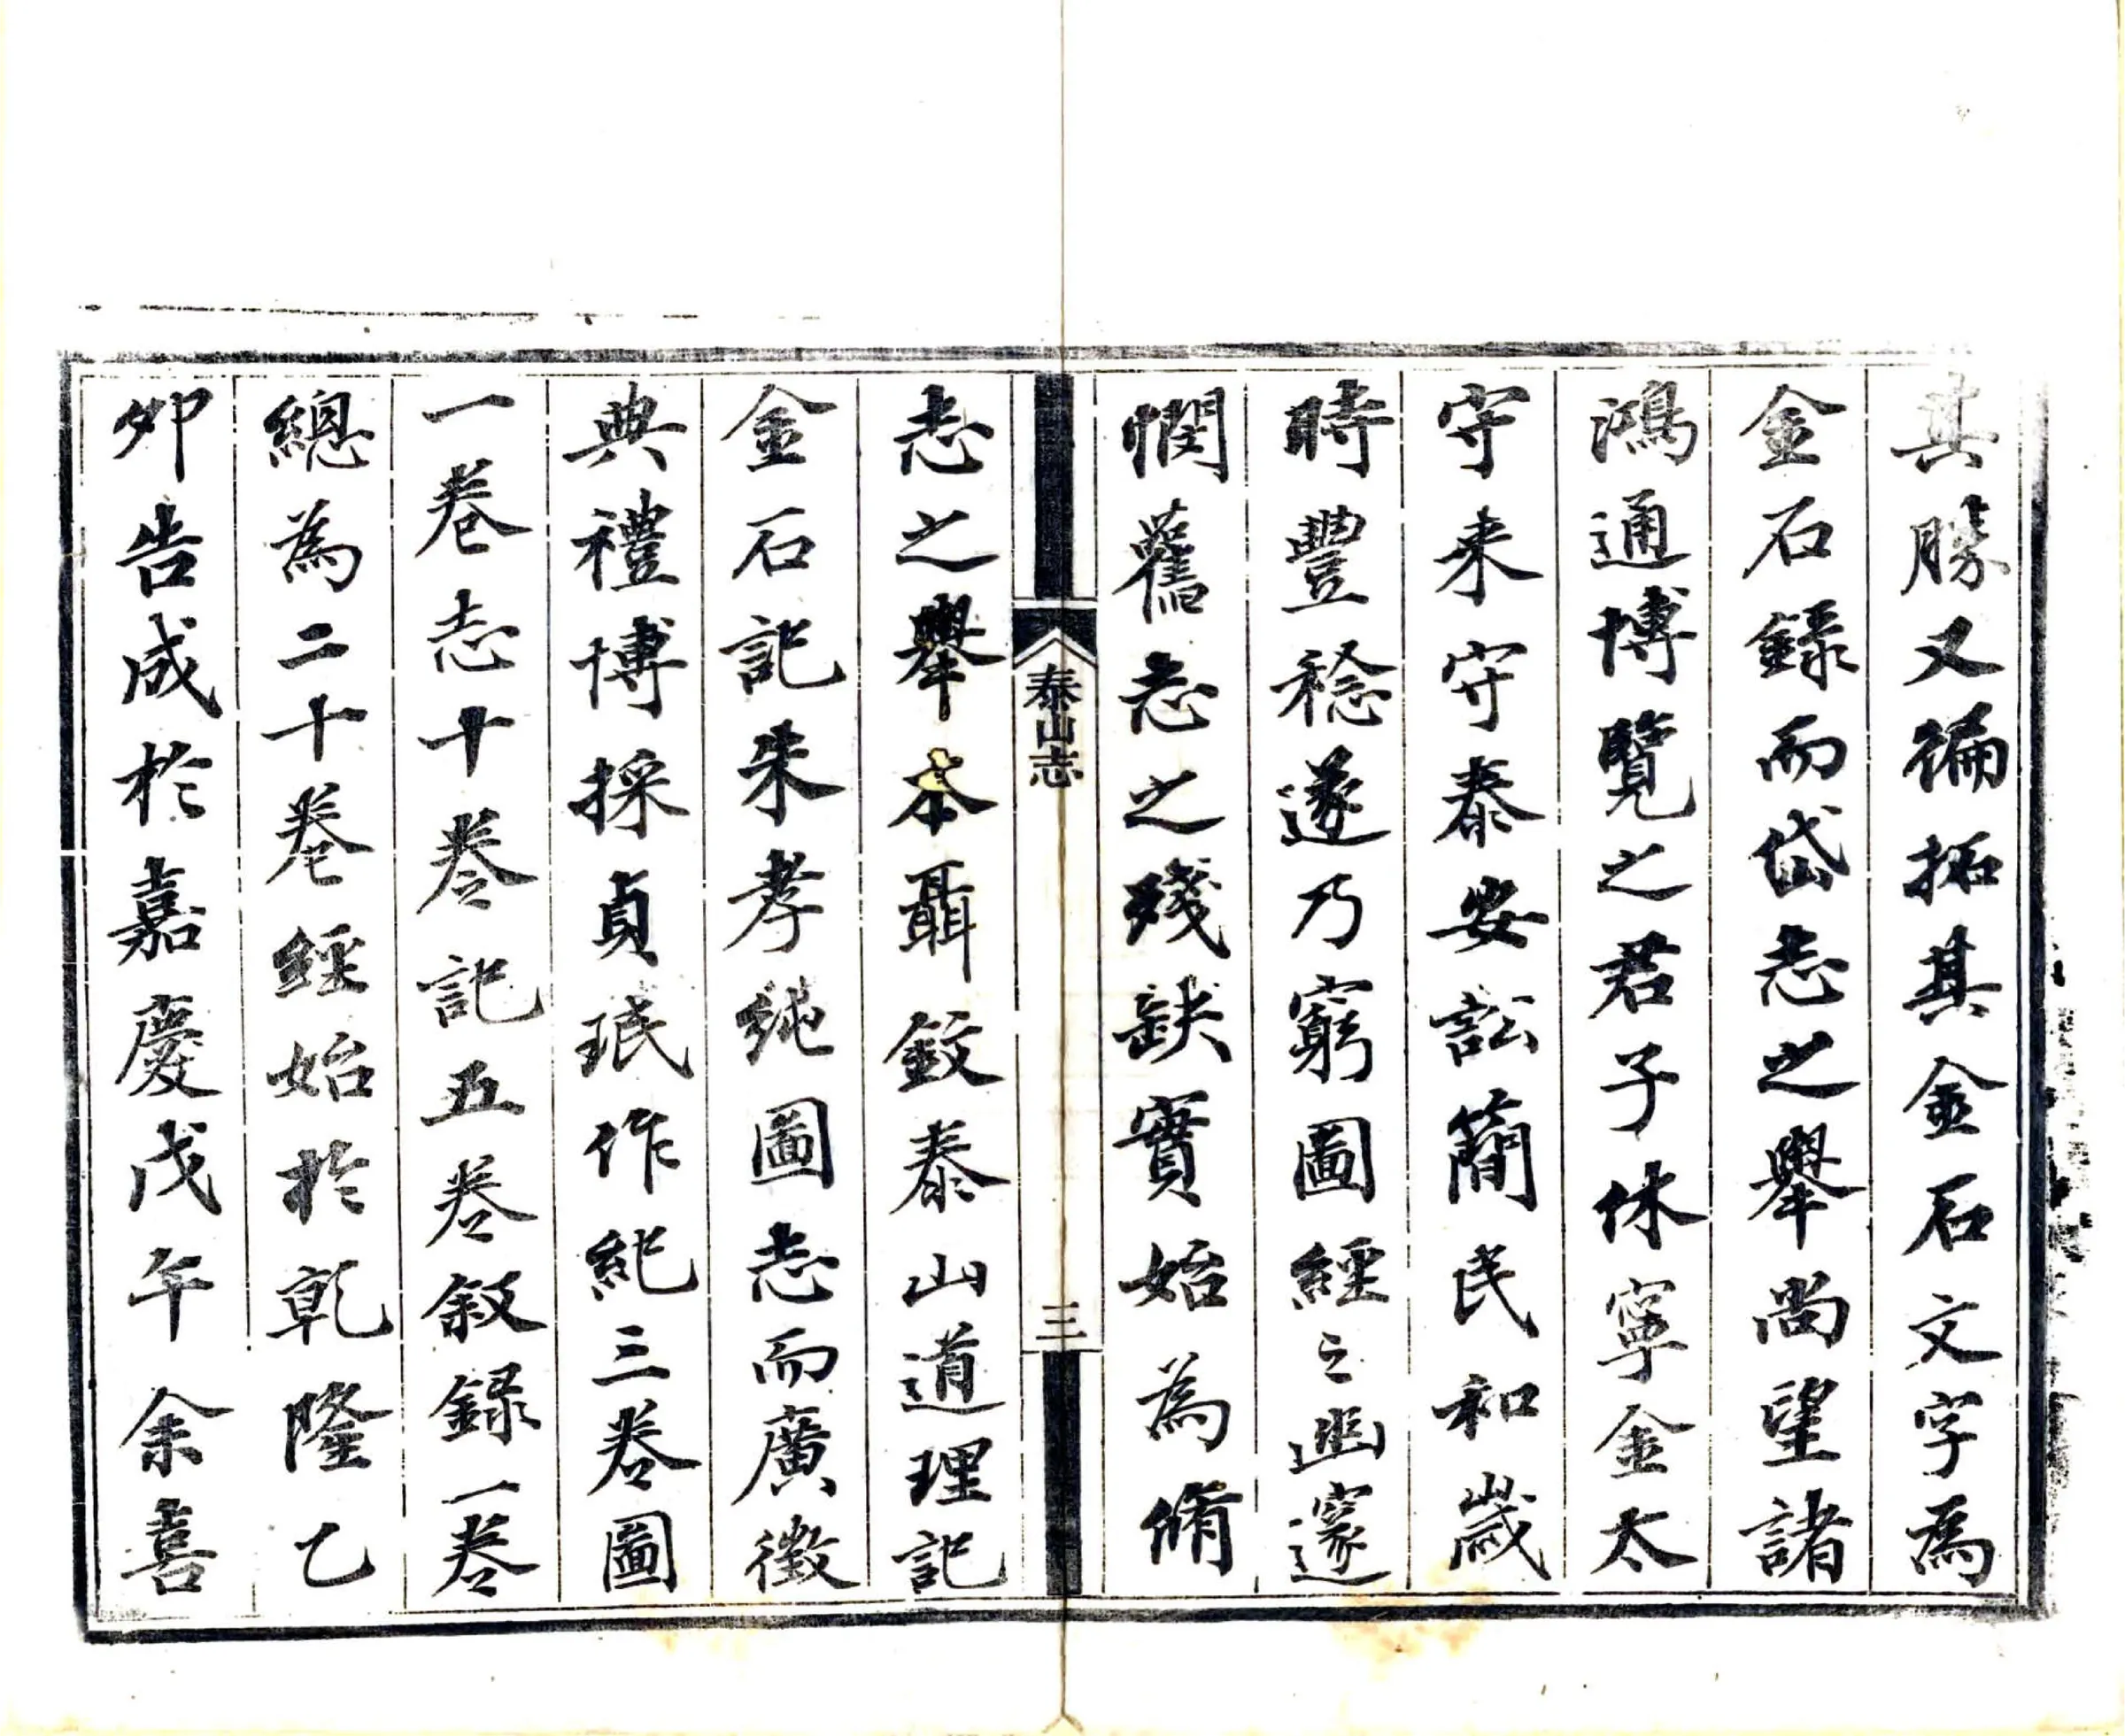 其勝又徧拓其金石文字爲
金石錄而岱志之舉尚望諸
鴻通博覽之君子休寧金太
守来守泰安訟簡民和歲
時豐稔遂乃窮圖經之幽邃
憫舊志之殘缺實始為脩
泰山志
三
志之舉本聶鈫泰山道理記
金石記朱孝純圖志而廣徵
典禮博採貞珉作紀三卷圖
一卷志十卷記五卷敘録一卷
總為二十卷經始於乾隆乙
卯告成於嘉慶戊午余喜